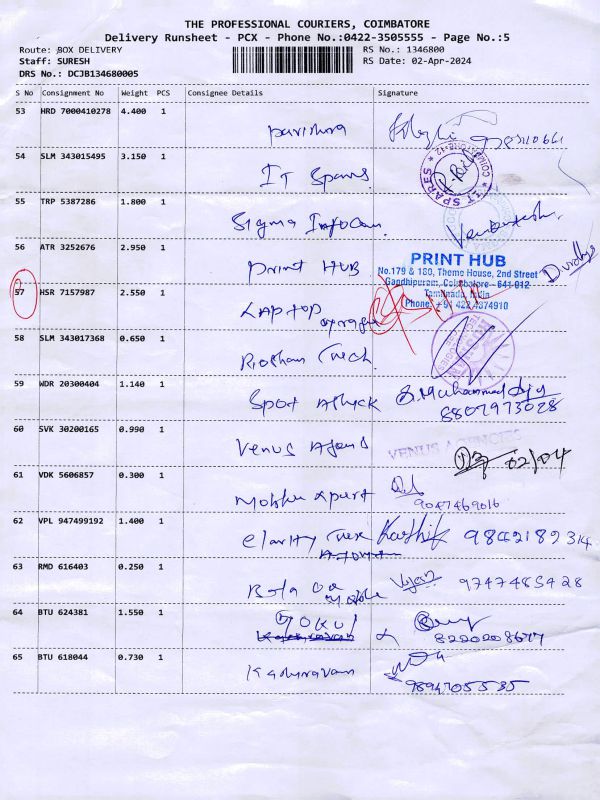 THE PROFESSIONAL COURIERS, COIMBATORE
Delivery Runsheet - PCX - Phone No.:0422-3505555 - Page No.:5
Route: BOX DELIVERY RS No.: 1346800
Staff: SURESH RS Date: 02-Apr-2024
DRS No.: DCJB134680005
S No Consignment No Weight PCS Consignee Details Signature
53 HRD 7000410278 4.400 1
54 SLM 343015495 3.150 1 IT Spares
IT SPARES COIMBATORE-12
55 TRP 5387286 1.800 1 Sigma Infocom
Venkatesh.
56 ATR 3252676 2.950 1 Print HUB
PRINT HUB
No.179 & 180, Theme House, 2nd Street
Gandhipuram, Coimbatore - 641 012
Tamilnadu, India
Phone: +91 422 4374910
57 HSR 7157987 2.550 1 LAPTOP
58 SLM 343017368 0.650 1 Roshan Tech.
59 WDR 20300404 1.140 1 Spot
8807973028
60 SVK 30200165 0.990 1 Venus
VENUS AGENCIES
02/04
61 VDK 5606857 0.300 1 Mobile Xpert
9047469016
62 VPL 947499192 1.400 1 Clarity Karthik 9842189314
63 RMD 616403 0.250 1 Vijay 9747485428
64 BTU 624381 1.550 1 GOKUL
65 BTU 618044 0.730 1 Kathiravan
9894705535